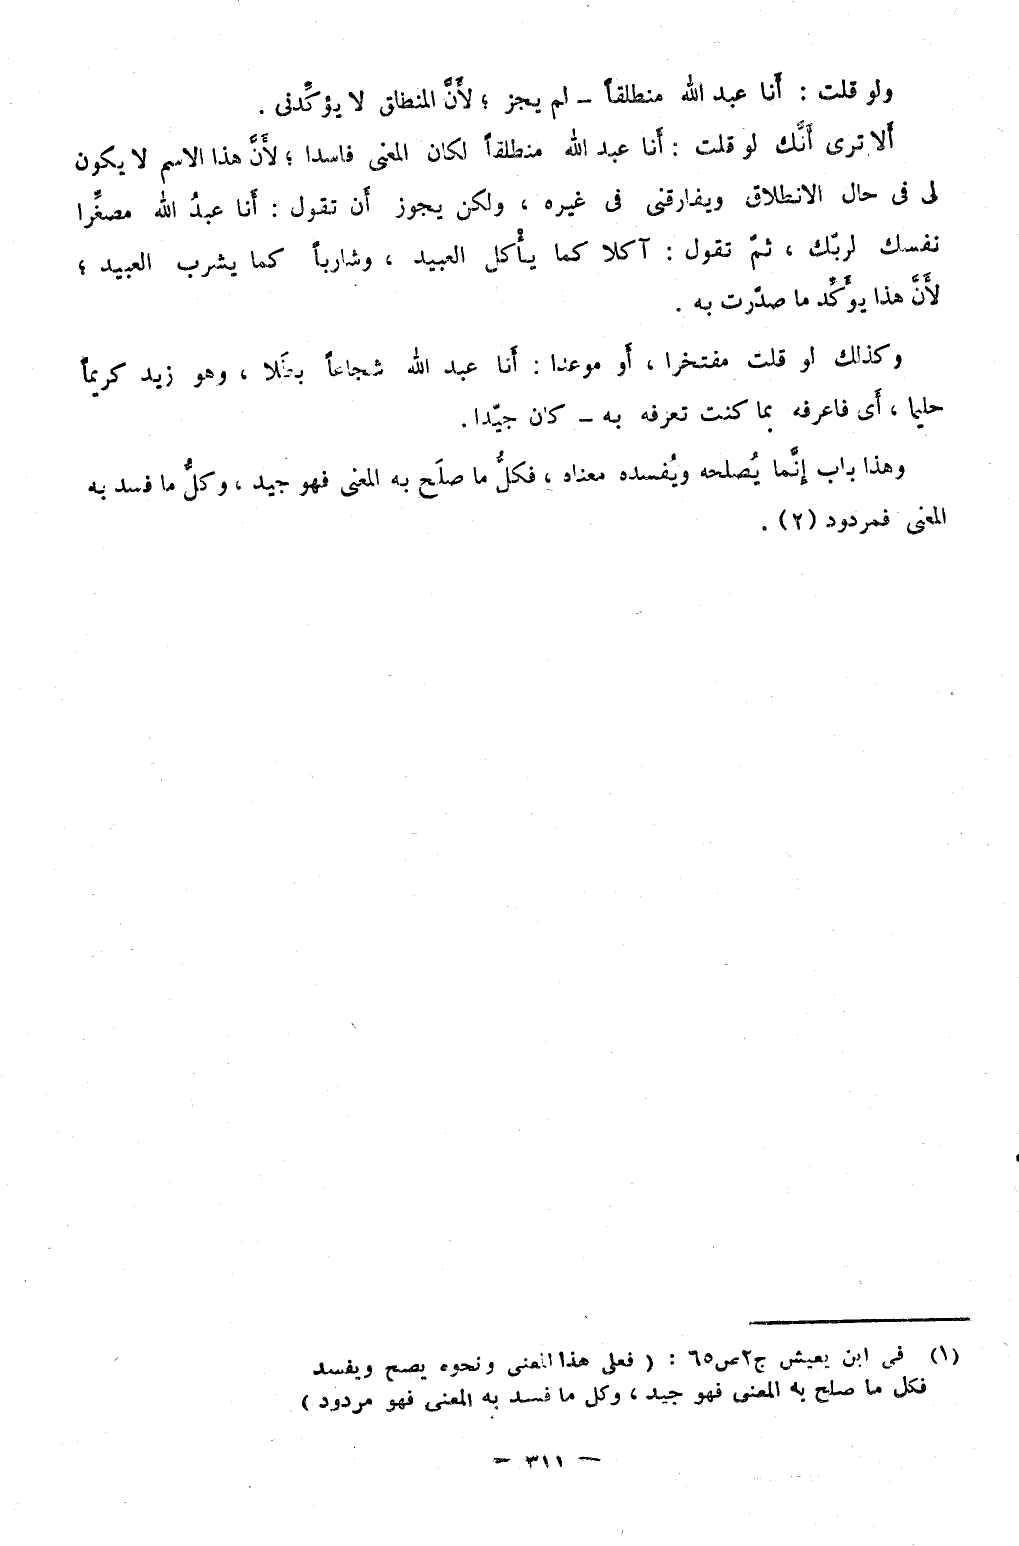 ولو قلت : أَنا عبد الله منطلقاً – لم يجز ؛ لأَنَّ المنطلق لا يؤكِّدنى .
أَلا ترى أَنَّك لو قلت : أَنا عبد الله منطلقاً لكان المعنى فاسدا ؛ لأَنَّ هذا الاسم لا يكون
لى فى حال الانطلاق ويفارقنى فى غيره ، ولكن يجوز أَن تقول : أَنا عبدُ الله مصغِّرا
نفسك لربّك ، ثمّ تقول : آكلا كما يأْكل العبيد ، وشارباً كما يشرب العبيد ؛
لأَنَّ هذا يؤَكِّد ما صدّرت به .
وكذلك لو قلت مفتخرا ، أَو موعدا : أَنا عبد الله شجاعاً بطَلا ، وهو زيد كريماً
حليما ، أَى فاعرفه بما كنت تعرفه به – كان جيّدا .
وهذا باب إِنَّما يُصلحه ويُفسده معناه ، فكلُّ ما صلَح به المعنى فهو جيد ، وكلُّ ما فسد به
المعنى فمردود (٢) .
(١) فى ابن يعيش ج٢ص٦٥ : ( فعلى هذا المعنى ونحوه يصح ويفسد
فكل ما صلح به المعنى فهو جيد ، وكل ما فسد به المعنى فهو مردود )
– ٣١١ –